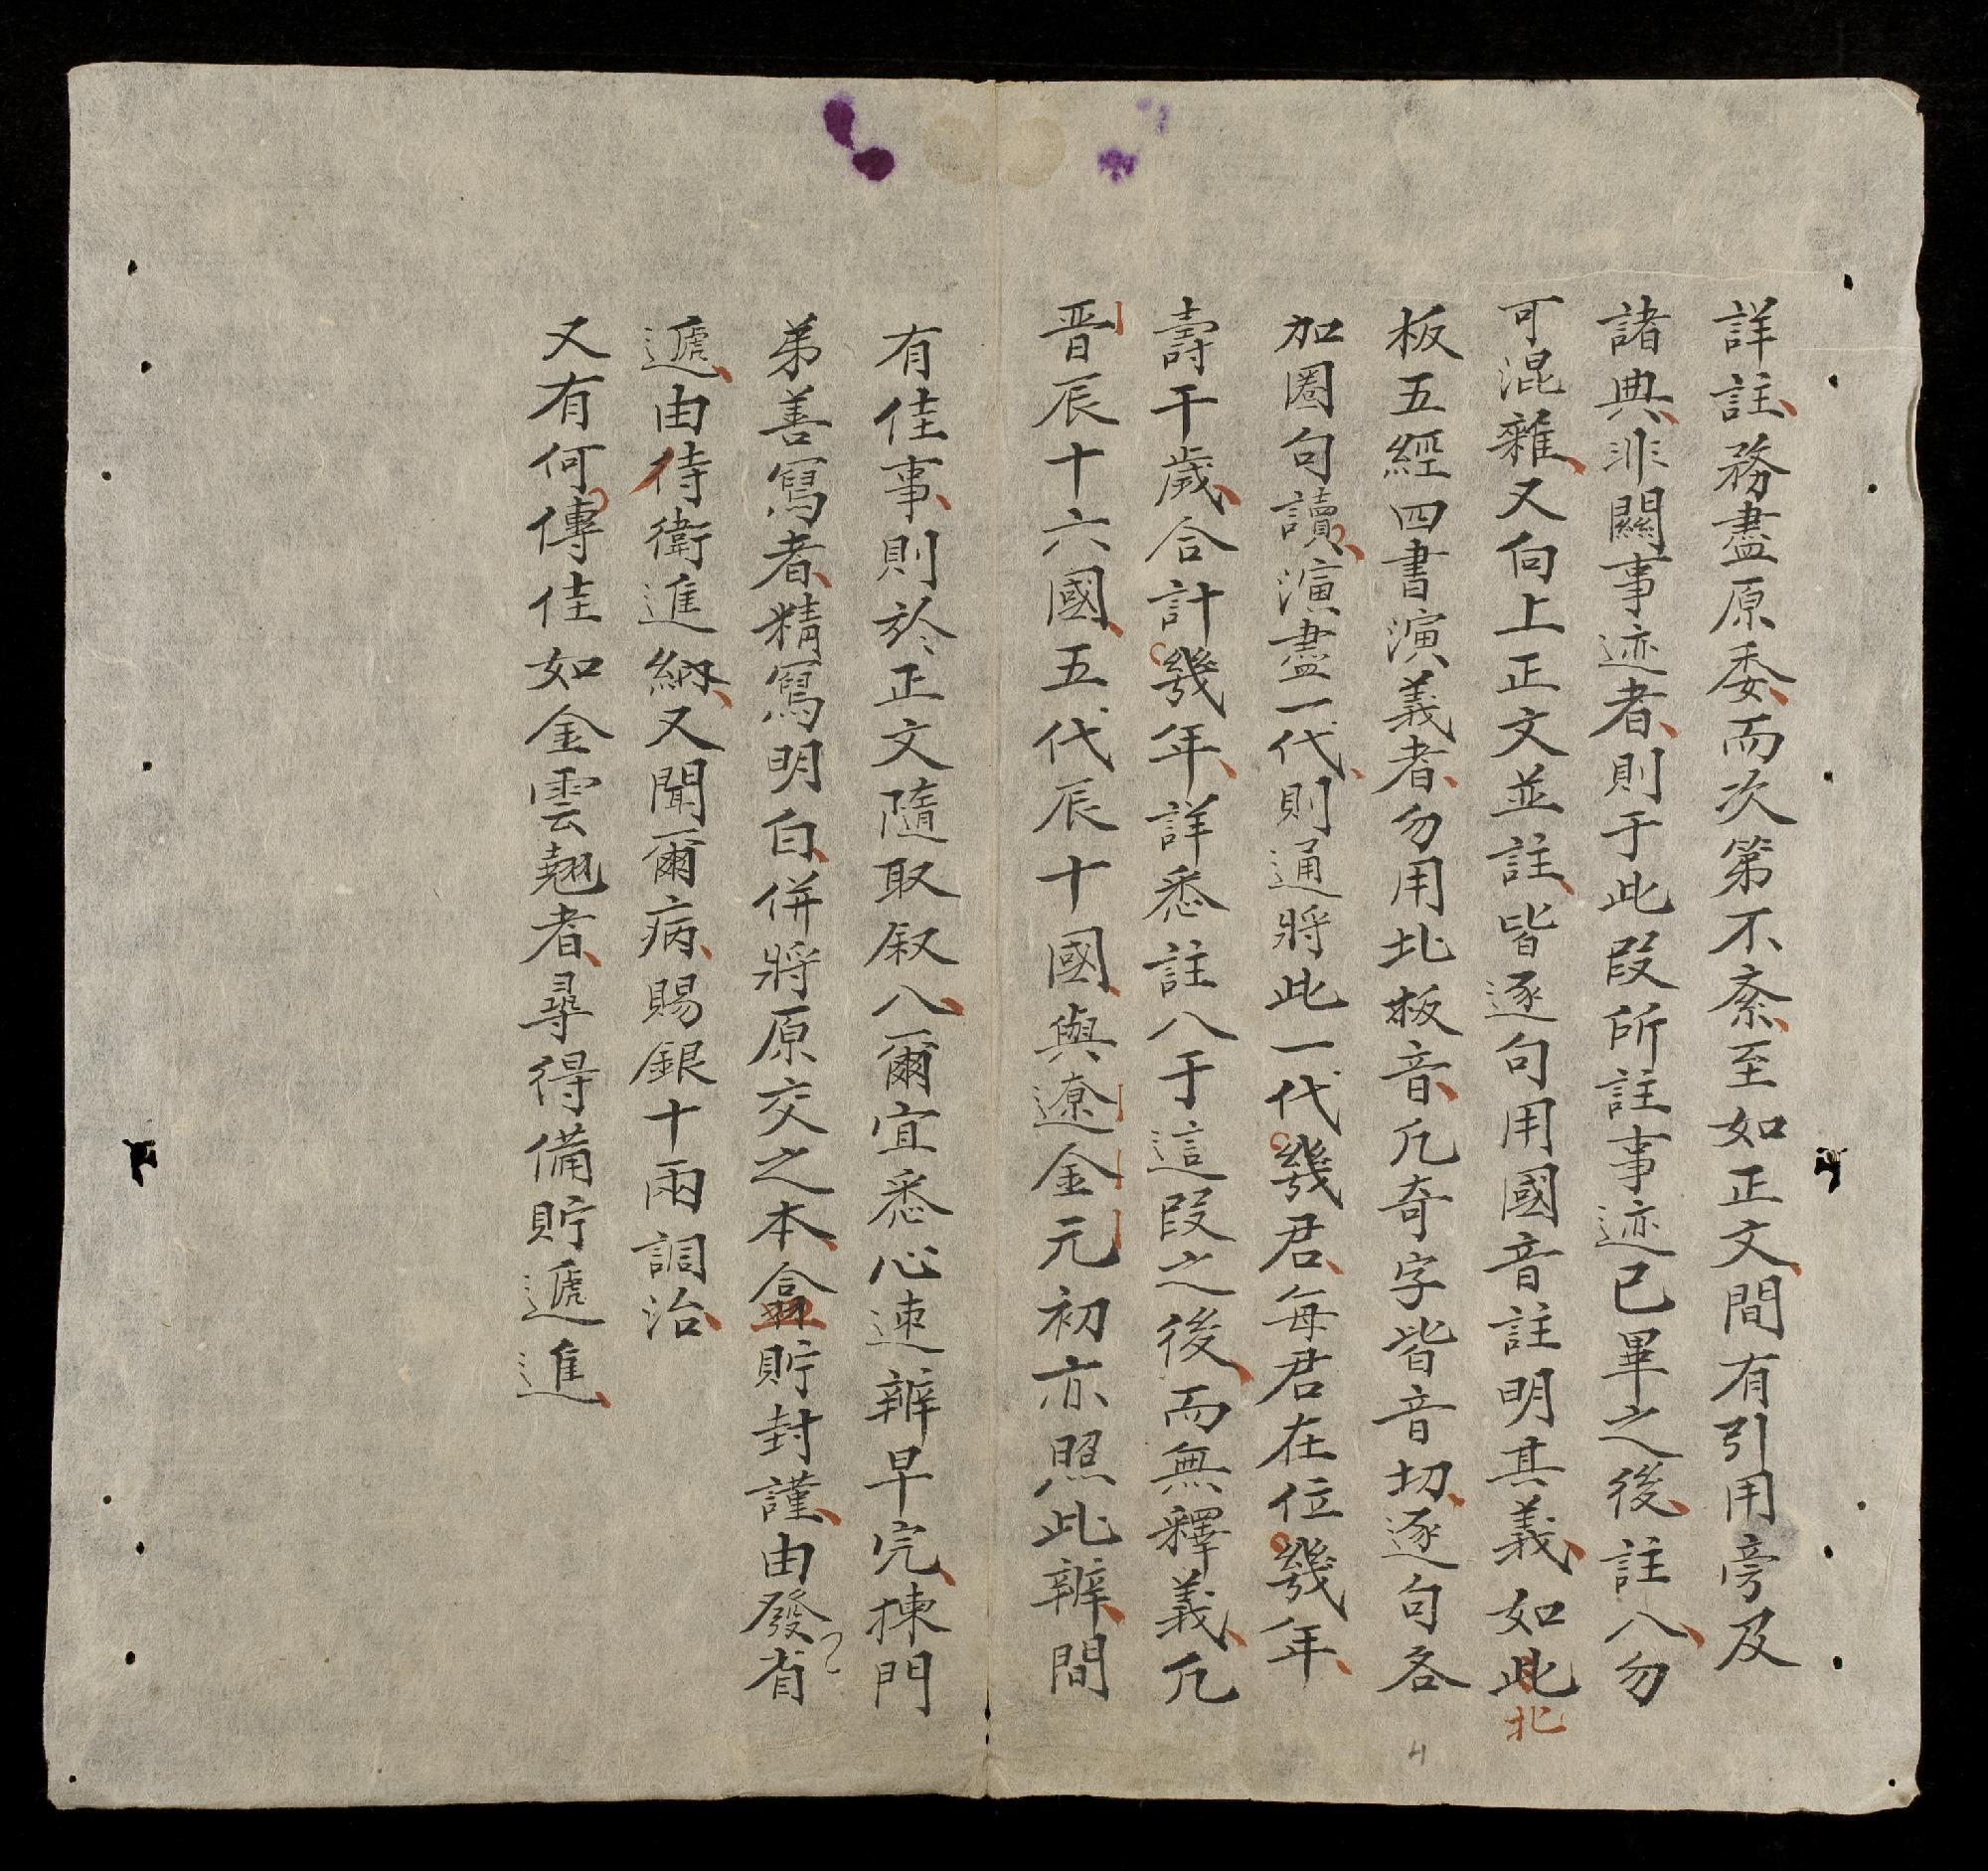 詳註務盡原委而次第不紊至如正文間有引用旁及
諸典非關事迹者則于此段所註事迹已畢之後註八勿
可混雜又向上正文並註皆逐句用國音註明其義如此北
板五經四書演義者勿用北板音凡奇字皆音切逐句各
加圈句讀演盡一代則通將此一代幾君每君在位幾年
壽干歲合計幾年詳悉註八于這段之後而無釋義凡
晋辰十六國五代辰十國與遼金元初亦照此辦間
有佳事則於正文隨取叙八爾宜悉心速辦早完揀門
弟善寫者精寫明白併將原交之本盒貯封謹由發省
遞由侍衛進納又聞爾病賜銀十兩調治
又有何傳佳如金雲翹者尋得備貯遞進